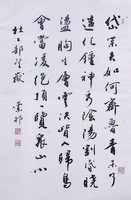 岱宗夫如何齊魯青未了
造化鍾神秀陰陽割昏曉
盪胸生層雲決眥入歸鳥
會當凌絕頂一覽眾山小
杜工部望嶽